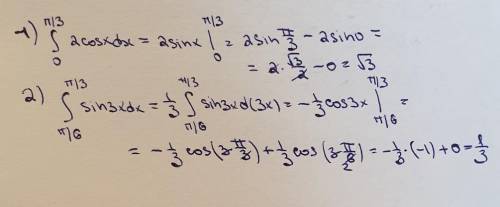 1) ∫₀^{π/3} 2cosxdx = 2sinx |₀^{π/3} = 2sin π/3 - 2sin0 =
= 2·√3/2 - 0 = √3
2) ∫_{π/6}^{π/3} sin3xdx = 1/3 ∫_{π/6}^{π/3} sin3xd(3x) = -1/3 cos3x |_{π/6}^{π/3} =
= -1/3 cos(3·π/3) + 1/3 cos(3·π/6) = -1/3·(-1) + 0 = 1/3